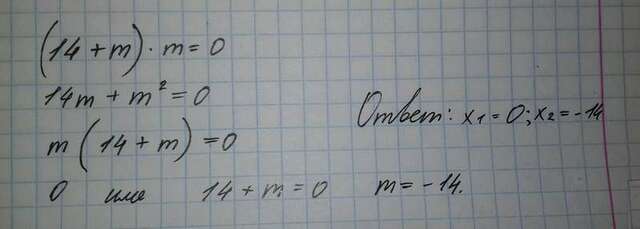 (14 + m) · m = 0
14m + m² = 0
m (14 + m) = 0
0 или 14 + m = 0 m = -14.
Ответ: x₁ = 0; x₂ = -14